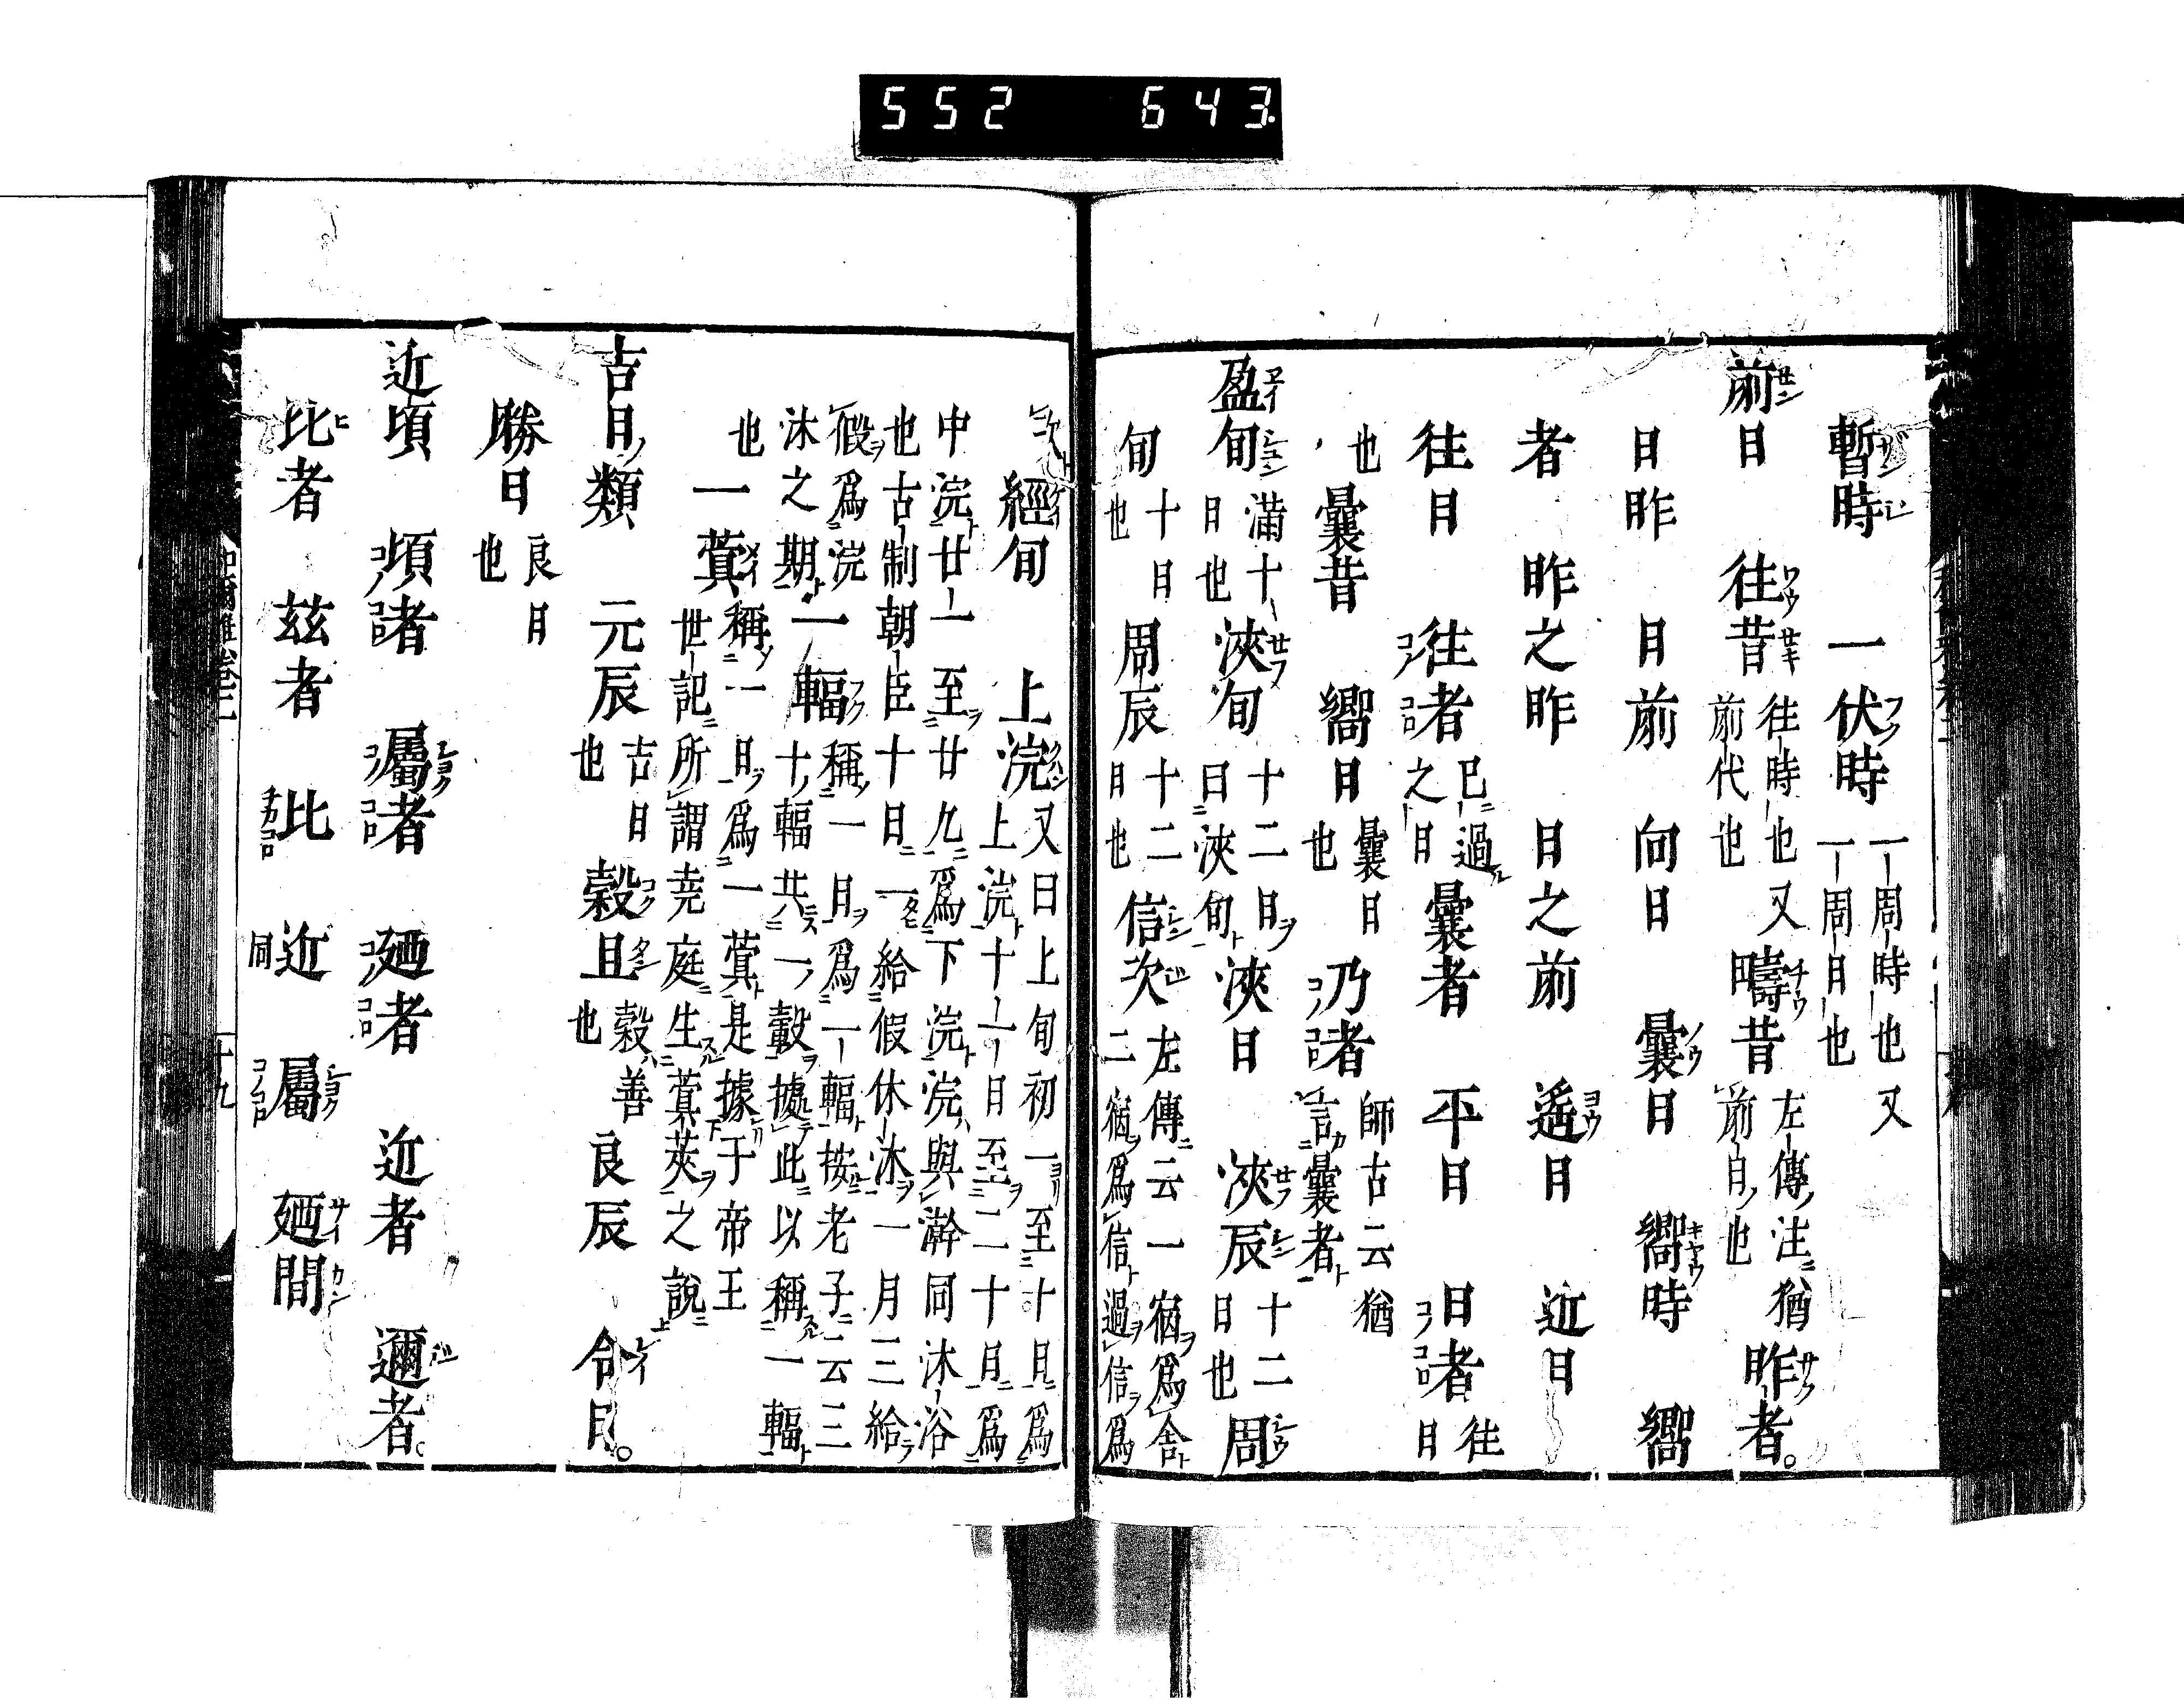 552 643.
暫時 一伏時 一周時也又一周日也
前日 往昔 往時也又前代也 疇昔 左傳注猶前日也 昨者。
日昨 日前 向日 曩日 嚮時 嚮
者 昨之昨 日之前 遙日 近日
往日 往者 已過之日 曩者 平日 日者 往日
也 曩昔 嚮日 曩日也 乃者 師古云猶言曩者
盈旬 滿十日也 浹旬 十二日曰浹旬 浹日 浹辰 十二日也 周
旬 十日也 周辰 十二日也 信次 左傳云一宿爲舍二宿爲信過信爲
次 經旬 上浣 又曰上旬初一至十日爲上浣十一日至二十日爲
中浣廿一至廿九爲下浣浣與澣同沐浴
也古制朝臣十日一給假休沐一月三給
假爲浣 一輻 稱一月爲一輻按老子云三
沐之期 十輻共一轂據此以稱一輻
也 一蓂 稱一日爲一蓂是據于帝王
世記所謂堯庭生蓂莢之說
吉日類 元辰 吉日也 穀旦 穀善也 良辰 令日。
勝日 良日也
近頃 頃者 屬者 廼者 近者 邇者。
比者 茲者 比 近 同 屬 廼間
十九